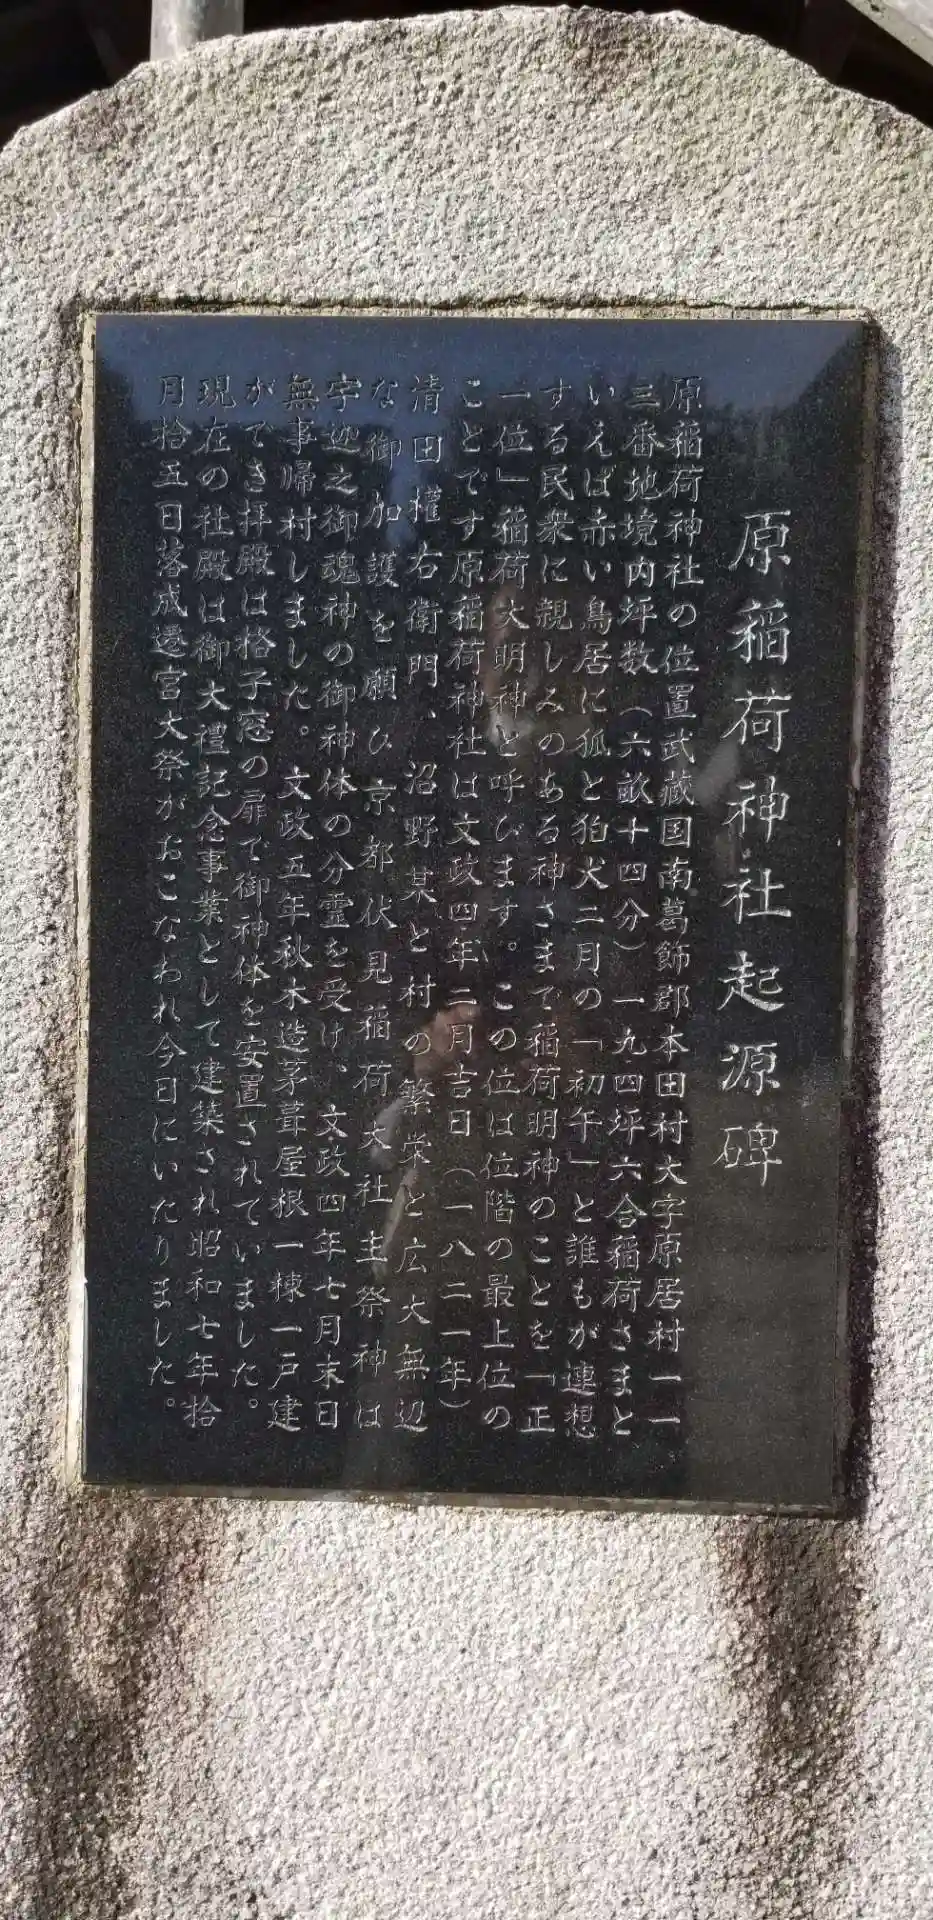 原稲荷神社起源碑
原稲荷神社の位置武藏国南葛飾郡本田村大字原居村一一
三番地境内坪数（六畝十四分）一九四坪六合稲荷さまと
いえば赤い鳥居に狐と狛犬二月の「初午」と誰もが連想
する民衆に親しみのある神さまで稲荷明神のことを「正
一位」稲荷大明神と呼びます。この位は位階の最上位の
ことです原稲荷神社は文政四年二月吉日（一八二一年）
清田權右衛門、沼野某と村の繁栄と広大無辺
な御加護を願ひ京都伏見稲荷大社主祭神は
宇迦之御魂神の御神体の分霊を受け、文政四年七月末日
無事帰村しました。文政五年秋木造茅葺屋根一棟一戸建
ができ拝殿は格子窓の扉で御神体を安置されていました。
現在の社殿は御大禮記念事業として建築され昭和七年拾
月拾五日落成遷宮大祭がおこなわれ今日にいたりました。